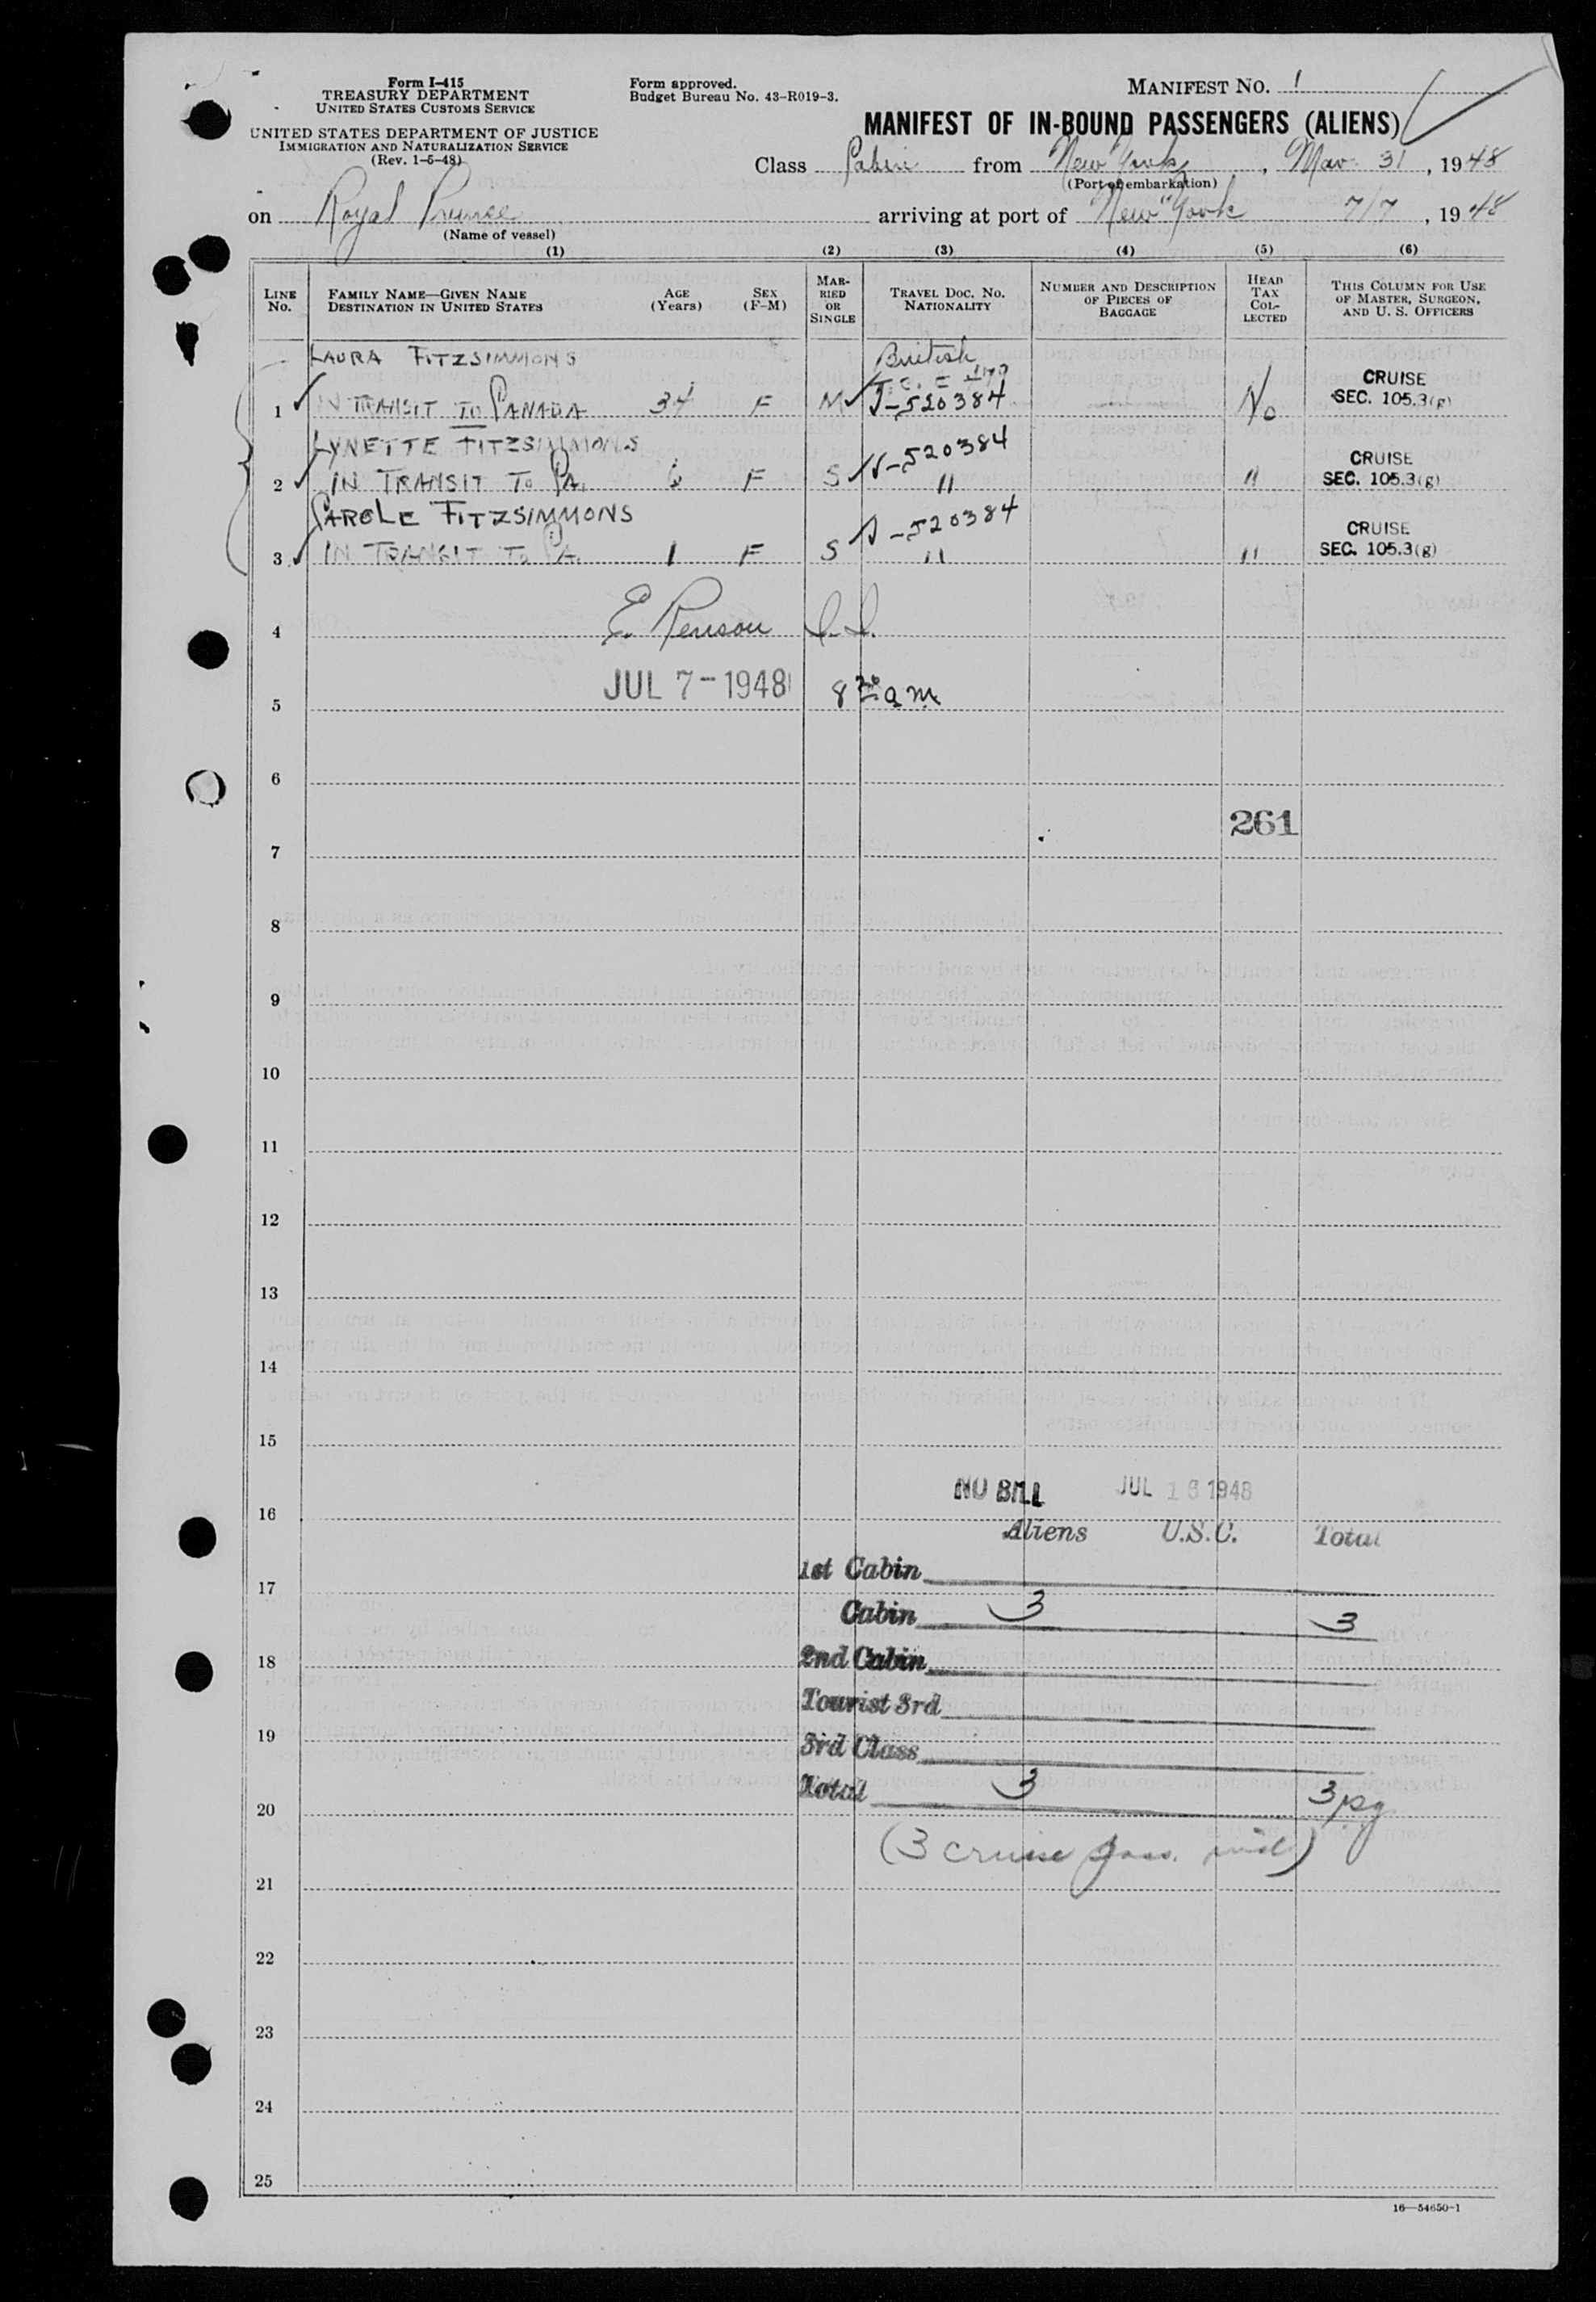 Form I-415
TREASURY DEPARTMENT
UNITED STATES CUSTOMS SERVICE
UNITED STATES DEPARTMENT OF JUSTICE
IMMIGRATION AND NATURALIZATION SERVICE
(Rev. 1-5-48)
Form approved.
Budget Bureau No. 43-R019-3.
MANIFEST NO. 1
MANIFEST OF IN-BOUND PASSENGERS (ALIENS)
Class Cabin from New York, Mar 31, 1948
(Port of embarkation)
on Royal Prince arriving at port of New York 7/7, 1948
(Name of vessel)
(1) (2) (3) (4) (5) (6)
LINE NO. FAMILY NAME—GIVEN NAME DESTINATION IN UNITED STATES AGE (Years) SEX (F-M) MARRIED OR SINGLE TRAVEL DOC. NO. NATIONALITY NUMBER AND DESCRIPTION OF PIECES OF BAGGAGE HEAD TAX COLLECTED THIS COLUMN FOR USE OF MASTER, SURGEON, AND U. S. OFFICERS
LAURA FITZSIMMONS British
CRUISE
1 IN TRANSIT TO CANADA 34 F M V-520384 No SEC. 105.3(g)
LYNETTE FITZSIMMONS V-520384 CRUISE
2 IN TRANSIT TO CA. 6 F S " " SEC. 105.3(g)
CAROLE FITZSIMMONS V-520384 CRUISE
3 IN TRANSIT TO CA. 1 F S " " SEC. 105.3(g)
4 E. Renson I.I.
5 JUL 7-1948 8 30 am
6
261
7
8
9
10
11
12
13
14
15
NO BILL JUL 16 1948
16
Aliens U.S.C. Total
1st Cabin
17
Cabin 3 3
2nd Cabin
18
Tourist 3rd
19
3rd Class
Total 3 3 psg
20
(3 cruise pass. incl)
21
22
23
24
25
16—54650-1